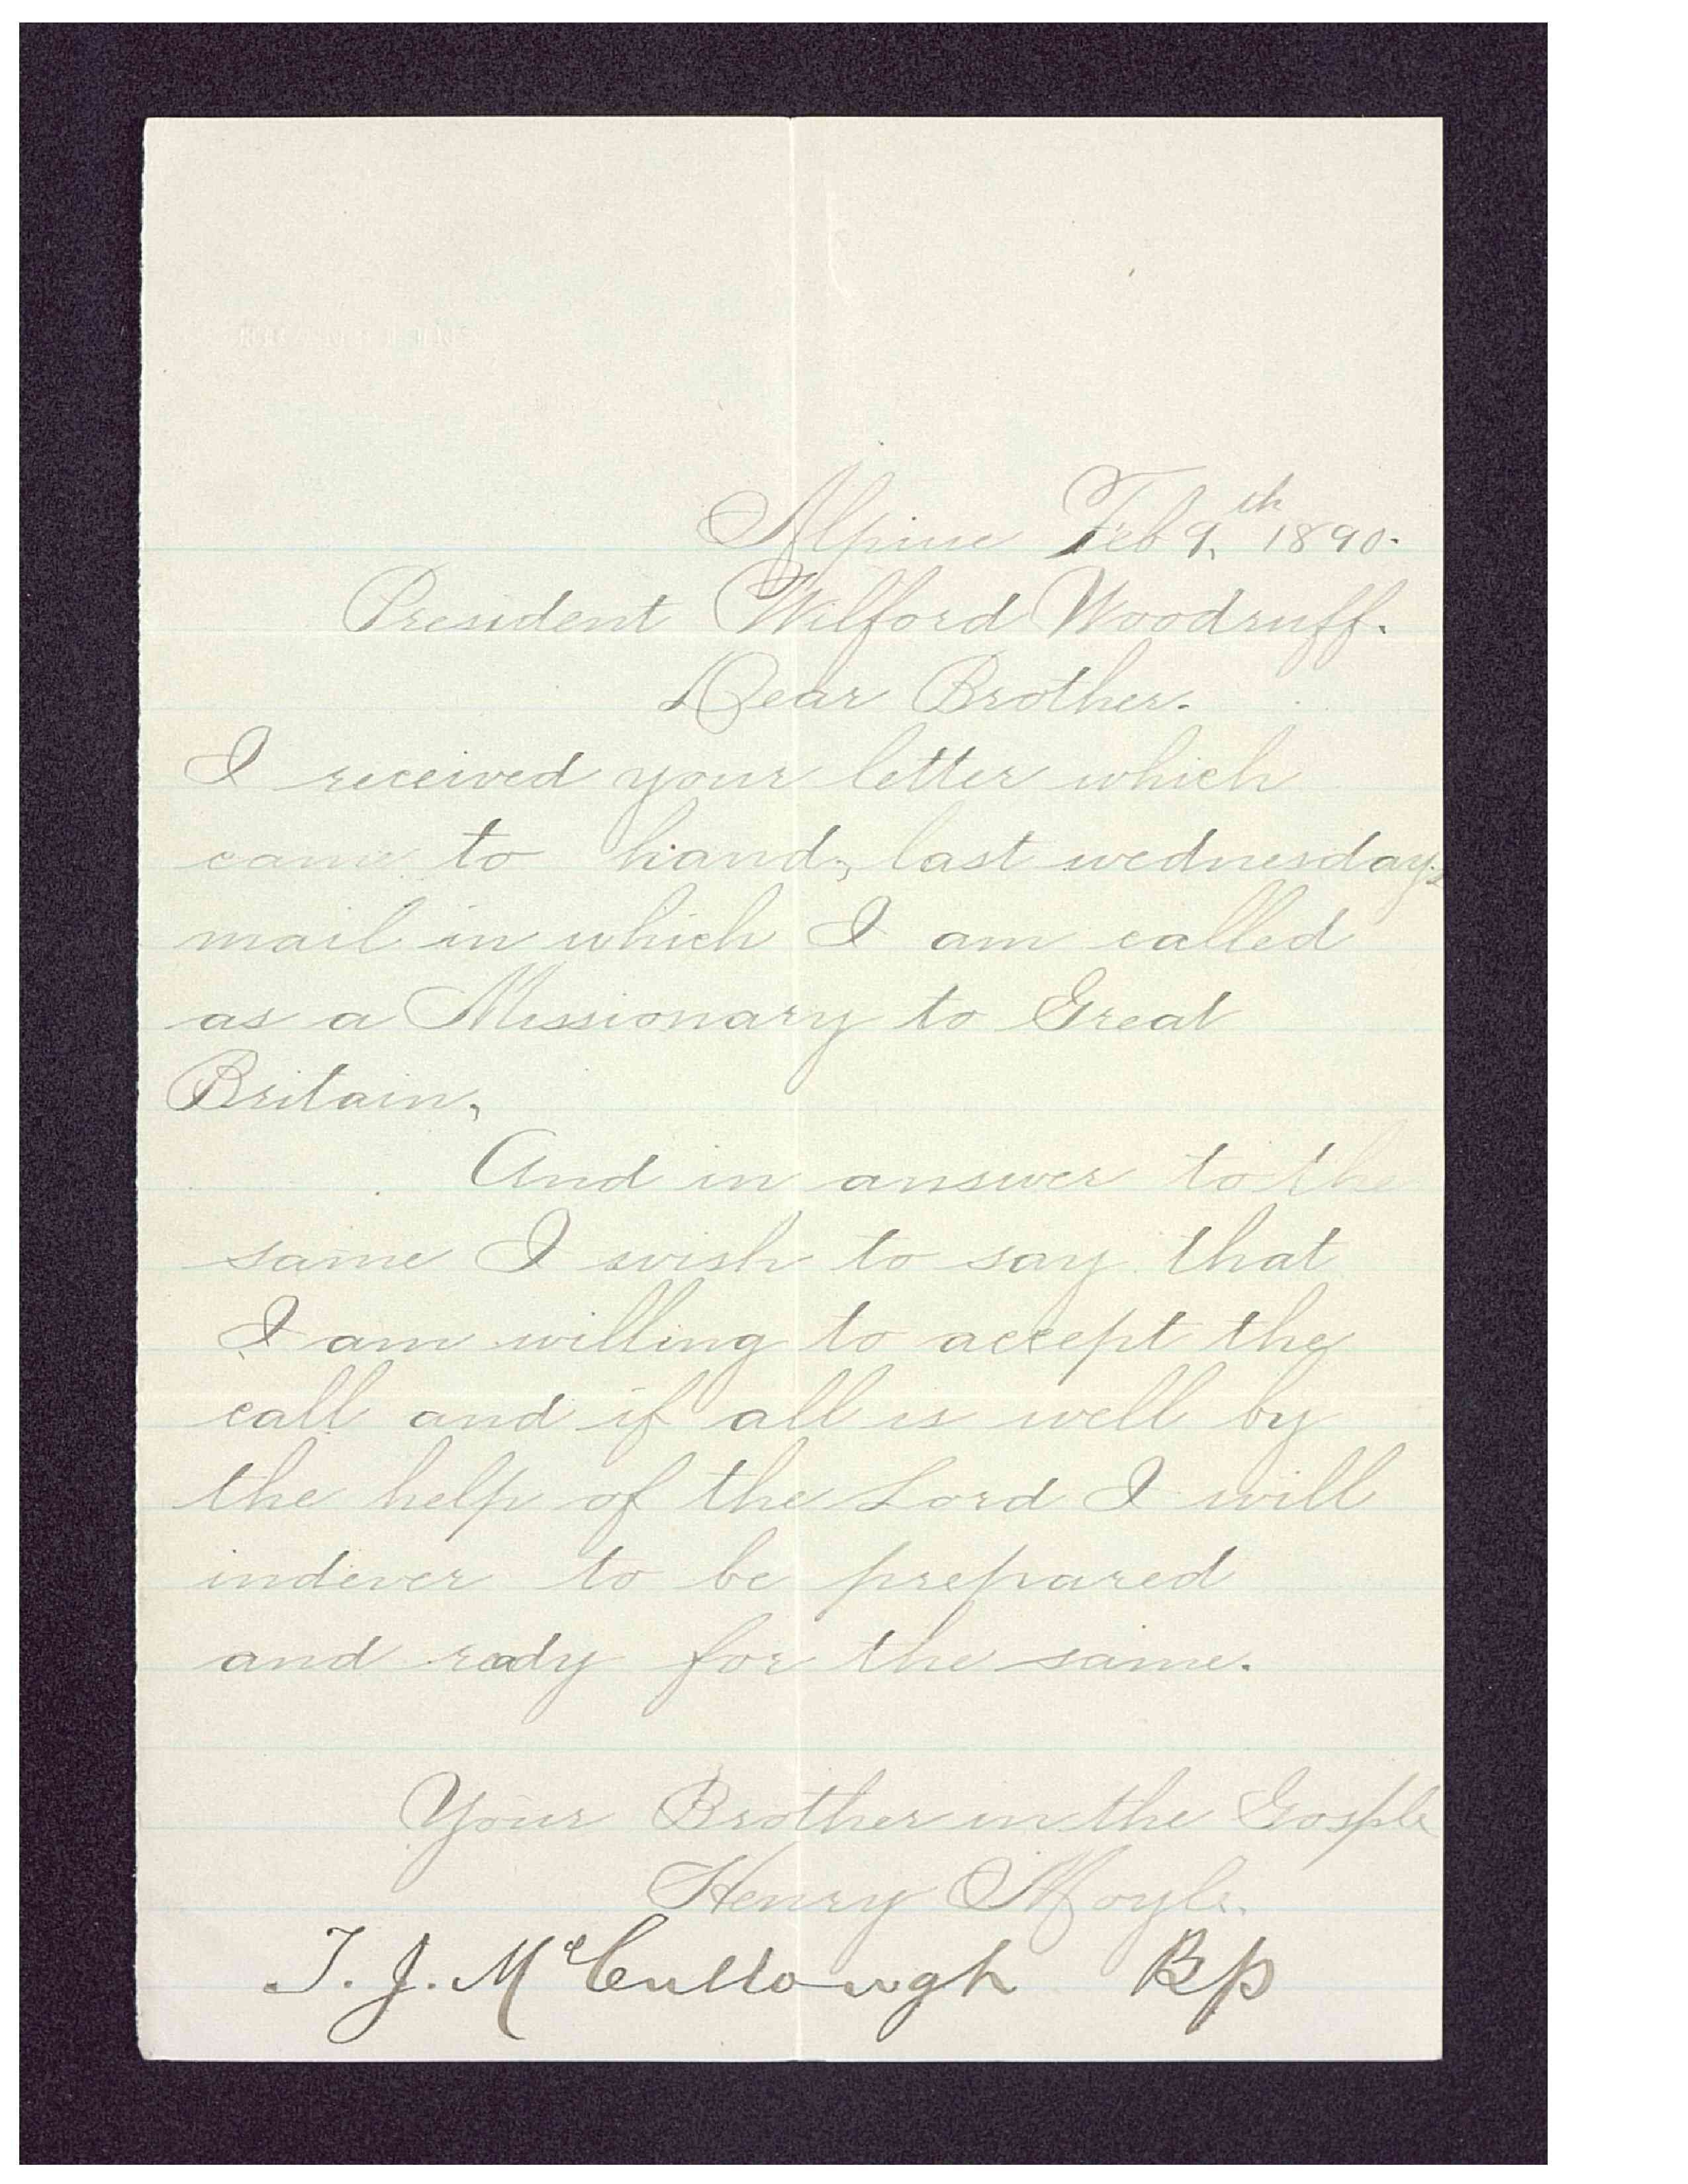 Alpine Feb 9th, 1890.
President Wilford Woodruff.
Dear Brother.
I received your letter which
came to hand, last wednesdays
mail in which I am called
as a Missionary to Great
Britain,
And in answer to the
same I wish to say that
I am willing to accept the
call and if all is well by
the help of the Lord I will
indever to be prepared
and rady for the same.
Your Brother in the Gosple
Henry Moyle.
T. J. McCullough Bp